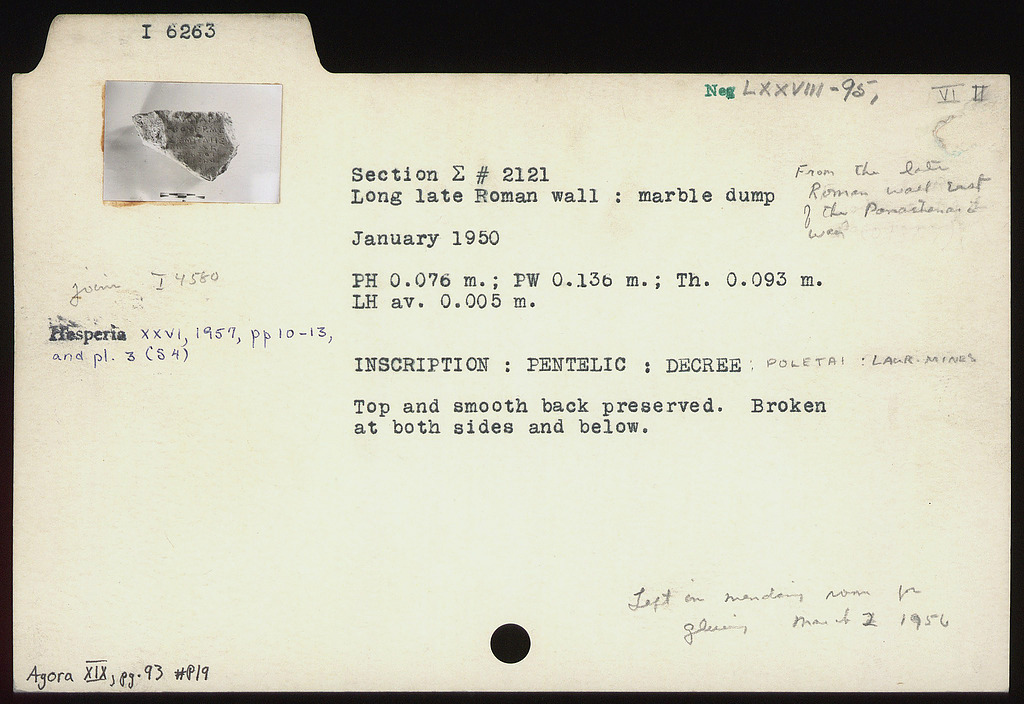 I 6263
Neg LXXVIII-95,
VI II
Section Σ # 2121
Long late Roman wall : marble dump
From the late
Roman wall East
of the Panathenaic
way
January 1950
PH 0.076 m.; PW 0.136 m.; Th. 0.093 m.
LH av. 0.005 m.
joins I 4580
Hesperia XXVI, 1957, pp 10-13,
and pl. 3 (S4)
INSCRIPTION : PENTELIC : DECREE : POLETAI : LAUR. MINES
Top and smooth back preserved. Broken
at both sides and below.
Left in mending room for
gluing March 2 1956
Agora XIX, pg. 93 #P19